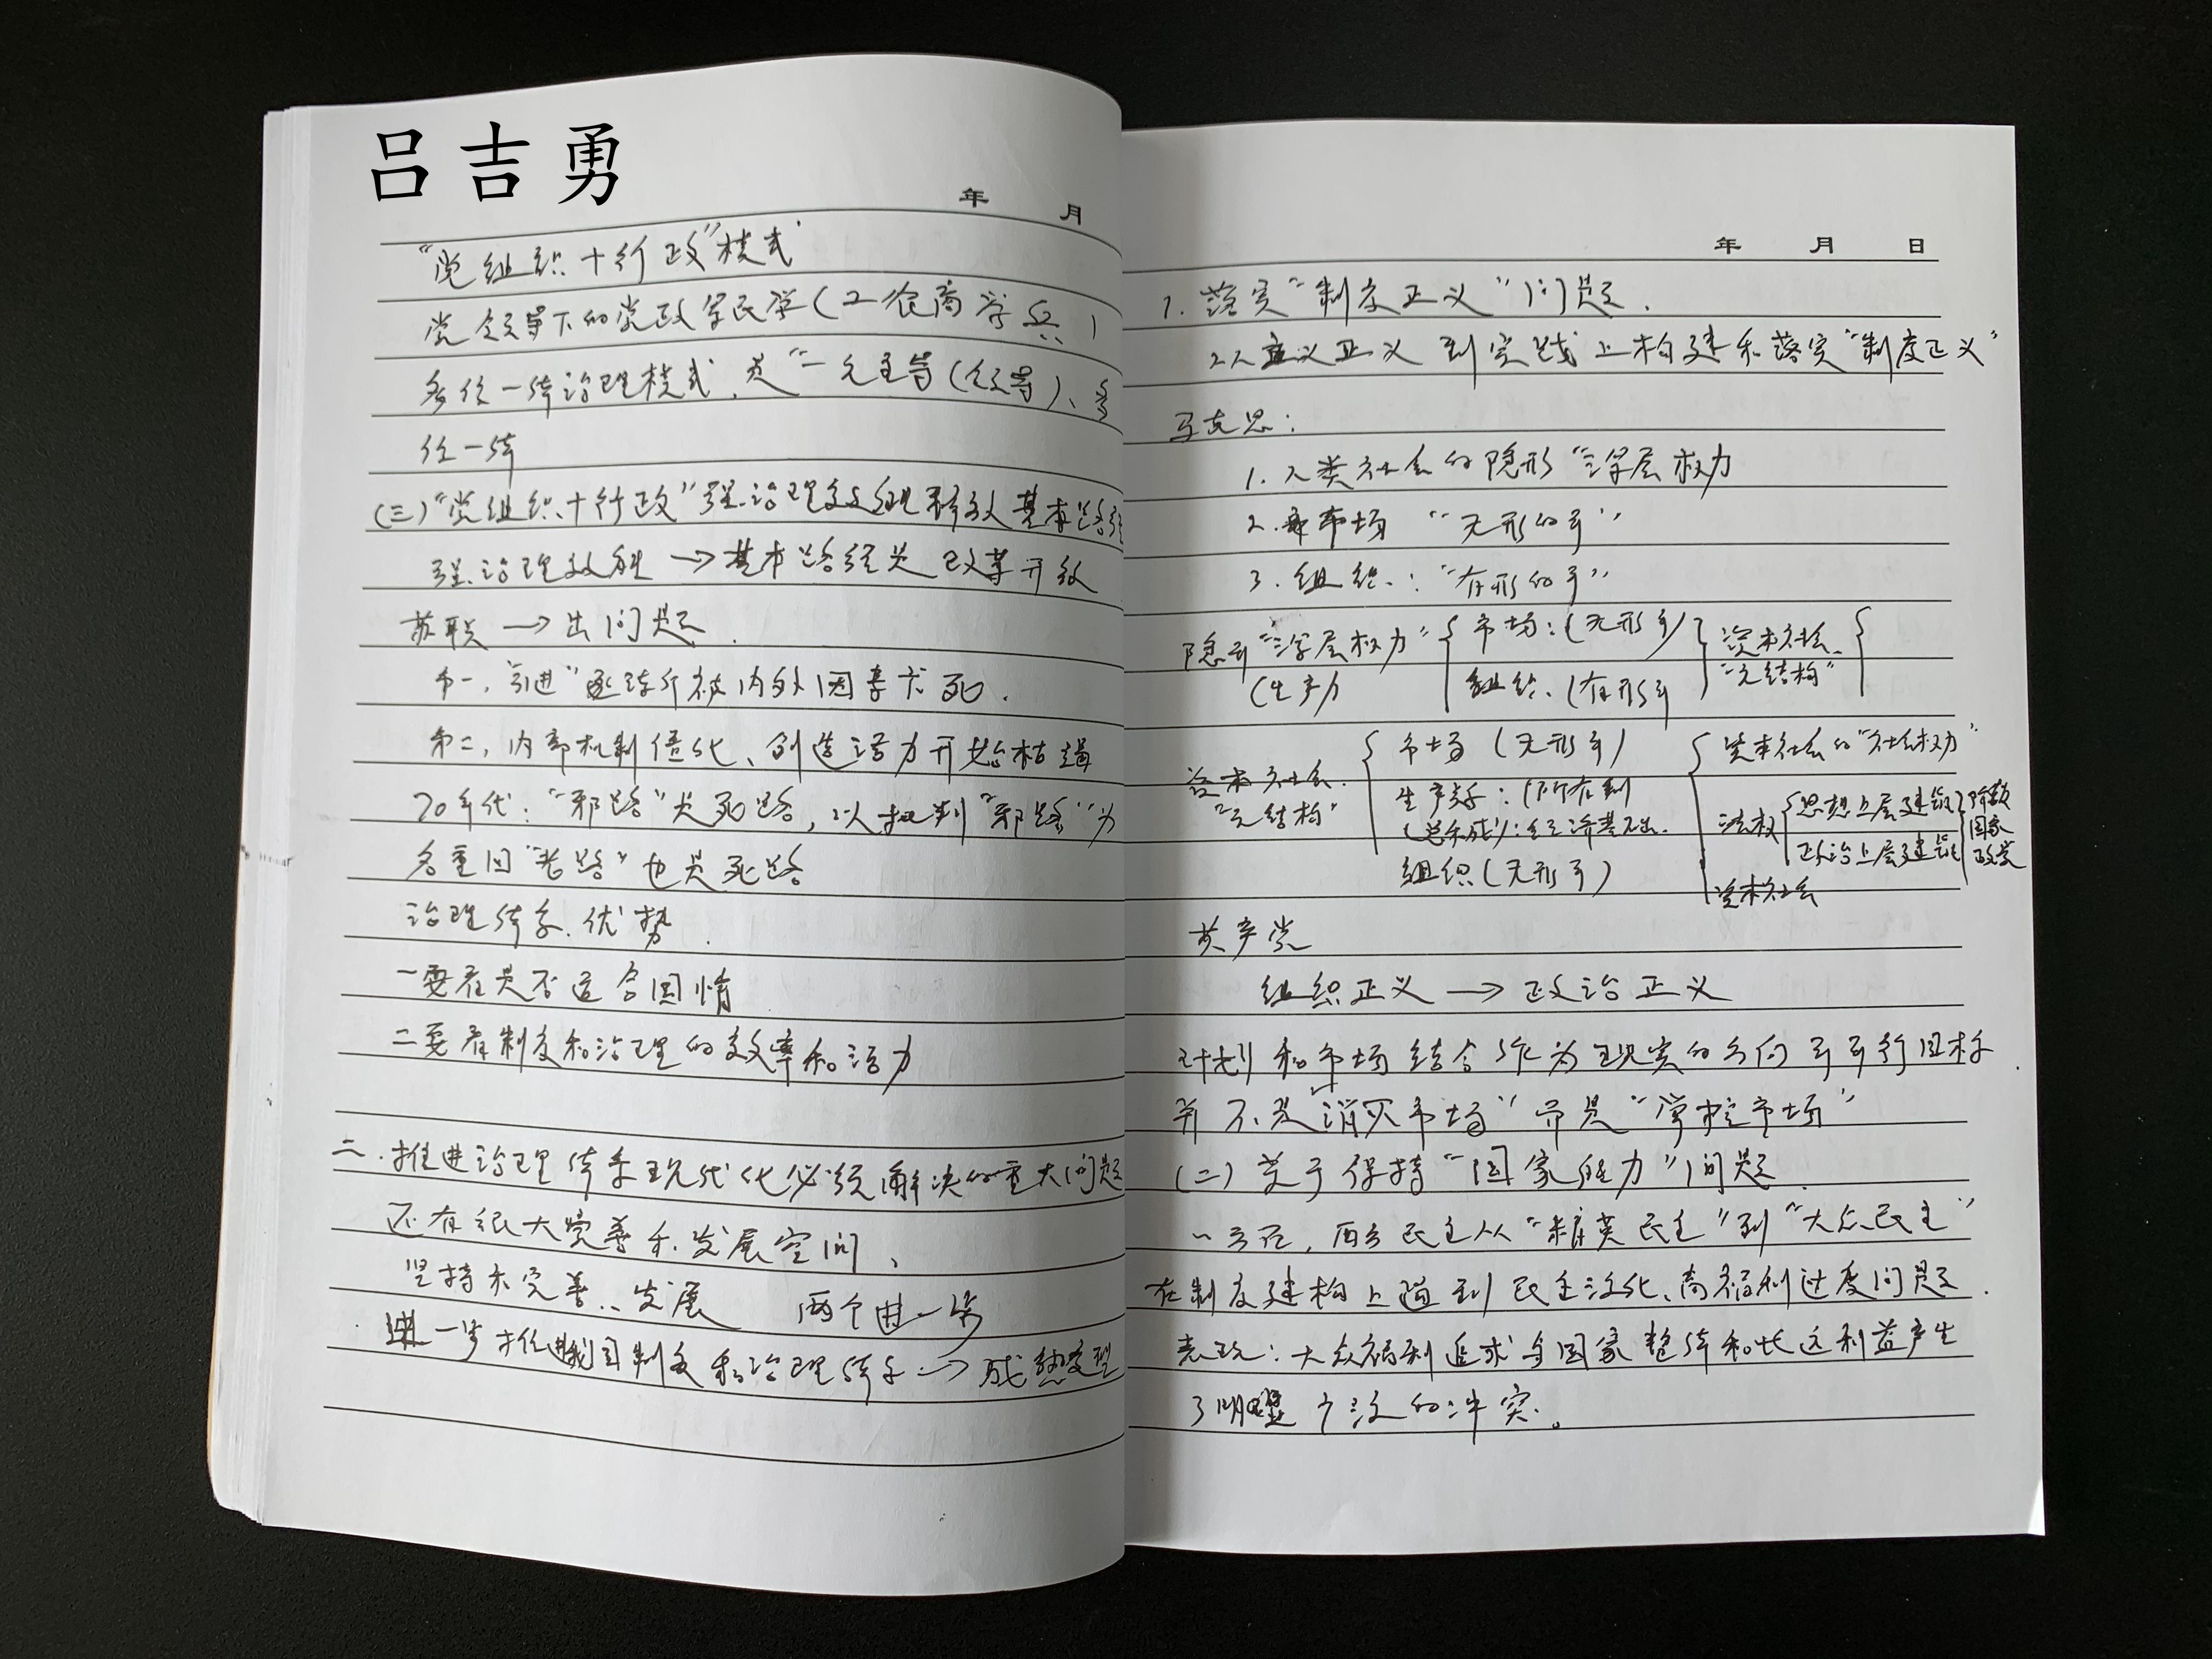 吕吉勇
年 月
“党组织+行政”模式
党领导下的党政军民学(工农商学兵)
多位一体治理模式,是“一元主导(领导)、多
位一体
(三)“党组织+行政”强治理效能释放基本路径
强治理效能→基本路径是改革开放
苏联→出问题.
第一,“引进”逐渐被内外因素卡死.
第二,内部机制僵化、创造活力开始枯竭
70年代:“邪路”是死路,以批判“邪路”为
名重回“老路”也是死路
治理体系优势.
一要看是否适合国情
二要看制度和治理的效率和活力
二.推进治理体系现代化必须解决的重大问题
还有很大完善和发展空间、
坚持和完善、发展 两个进一步
进一步推进我国制度和治理体系→成熟定型
年 月 日
1.落实“制度正义”问题.
从主义正义到实践上构建和落实“制度正义”
马克思:
1.人类社会的隐形“深层权力
2.市场“无形的手”
3.组织:“有形的手”
隐形“深层权力” { 市场:(无形手) } 资本社会 {
(生产力 组织(有形手 “元结构”
资本社会 { 市场(无形手) { 资本社会的“社会权力”
“元结构” 生产关系:(所有制 法权 { 思想上层建筑 } 阶级
(总和成):经济基础. 政治上层建筑 国家
组织(无形手) 政党
资本社会
共产党
组织正义→政治正义
计划和市场结合作为现实的方向可行目标
并不是“消灭市场”而是“掌控市场”
(二)关于保持“国家能力”问题.
西方民主从“精英民主”到“大众民主”
在制度建构上遇到民主泛化、高福利过度问题.
表现:大众福利追求与国家整体和长远利益产生
了明显的冲突。